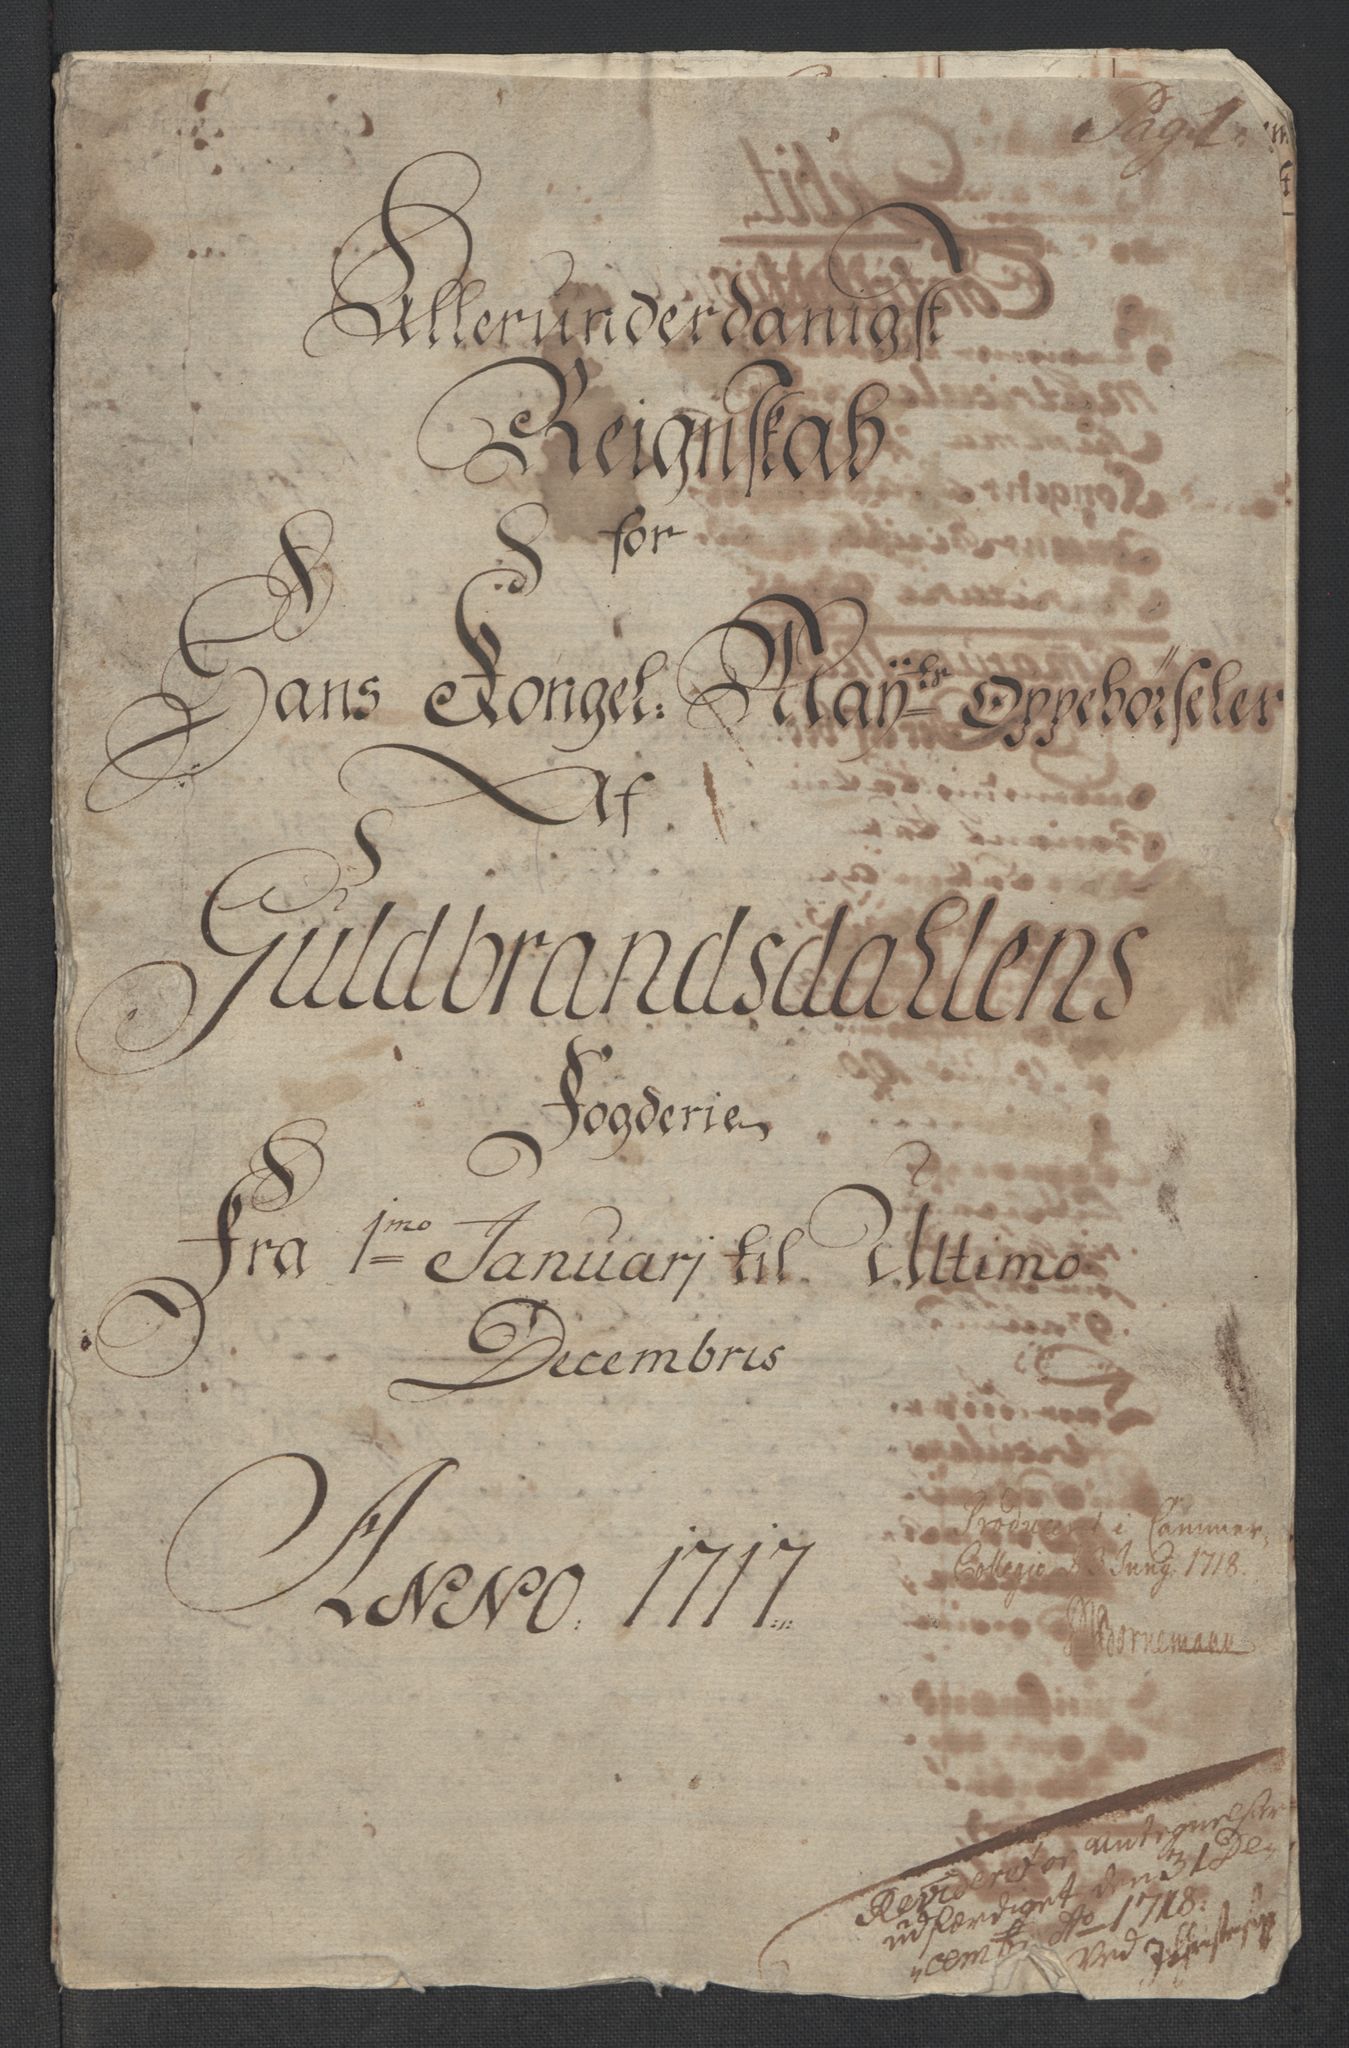 Pag 1:
Allerunderdanigst
Reignskab
for
Hans Kongel: Mayts Oppebörseler
Af
Guldbrandsdahlens
Fogderie
Fra 1mo Januarj til Ultimo
Decembris
ANNO. 1717
Producert i Cammer
Collegio d 3 Junij 1718.
Bornemann
Revideret og antegnelser
udferdiget den 31 De
cemb: Ao 1718.
ved